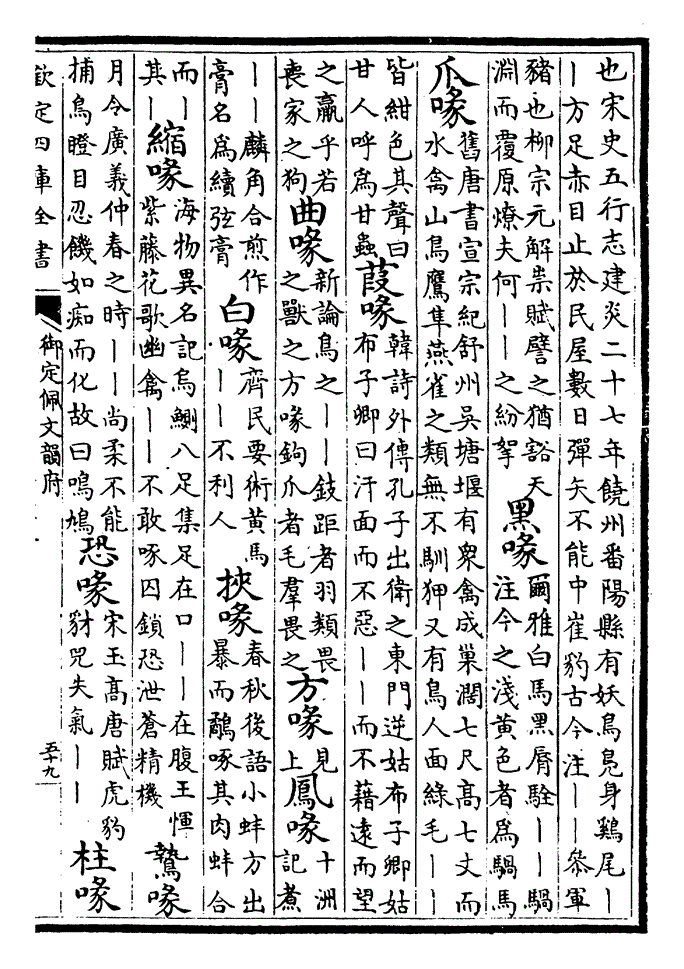 也宋史五行志建炎二十七年饒州番陽縣有妖鳥鳬身雞尾丨
丨方足赤目止於民屋數日彈矢不能中崔豹古今注丨丨叅軍
豬也柳宗元解祟賦譬之猶豁天
淵而覆原燎夫何丨丨之紛挐
黑喙
爾雅白馬黑脣駩丨丨騧
注今之淺黄色者為騧馬
爪喙
舊唐書宣宗紀舒州吳塘堰有衆禽成巢濶七尺高七丈而
水禽山鳥鷹隼燕雀之類無不馴狎又有鳥人面綠毛丨丨
皆紺色其聲曰
甘人呼為甘蟲
葭喙
韓詩外傳孔子出衛之東門逆姑布子卿姑
布子卿曰汙面而不惡丨丨而不藉遠而望
之羸乎若
喪家之狗
曲喙
新論鳥之丨丨鈘距者羽類畏
之獸之方喙鉤爪者毛羣畏之
方喙
見
上
鳳喙
十洲
記煮
丨丨麟角合煎作
膏名為續弦膏
白喙
齊民要術黄馬
丨丨不利人
挾喙
春秋後語小蚌方出
暴而鷸啄其肉蚌合
而丨
其丨
縮喙
海物異名記烏鰂八足集足在口丨丨在腹王惲
紫藤花歌幽禽丨丨不敢啄囚鎖恐泄蒼精機
鷙喙
月令廣義仲春之時丨丨尚柔不能
捕鳥瞪目忍饑如痴而化故曰鳴鳩
恐喙
宋玉髙唐賦虎豹
豺兕失氣丨丨
柱喙
欽定四庫全書
御定佩文韻府
五十九